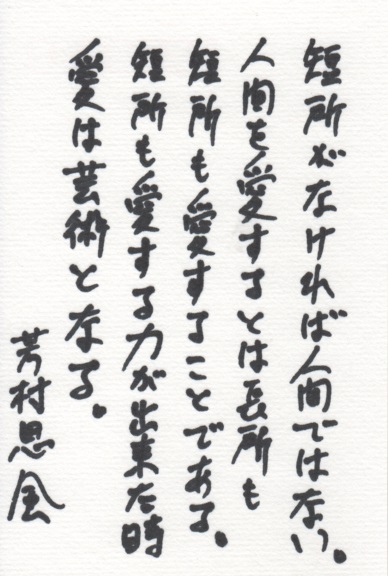 短所がなければ人間ではない。
人間を愛するとは長所も
短所も愛することである。
短所も愛する力が出来た時
愛は芸術となる。
芳村思風